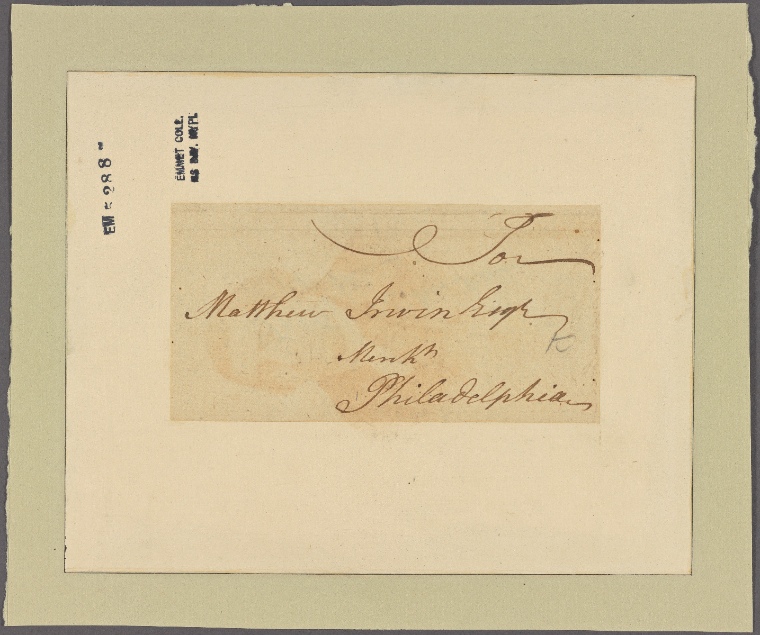 EM 5288
EMMET COLL.
MS DIV. NYPL
For
Matthew Irwin Esqr
Merch't
Philadelphia